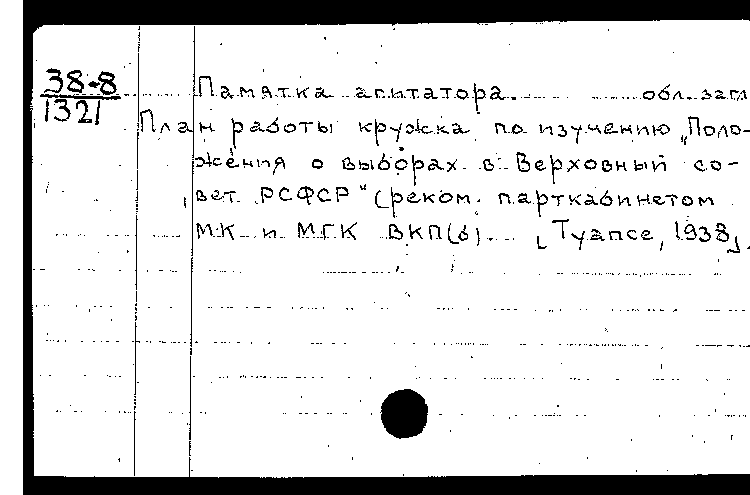 38-8
1321
Памятка агитатора. обл. загл
План работы кружка по изучению „Поло-
жения о выборах в Верховный со-
вет РСФСР" (реком. парткабинетом
МК и МГК ВКП(б). [Туапсе, 1938].